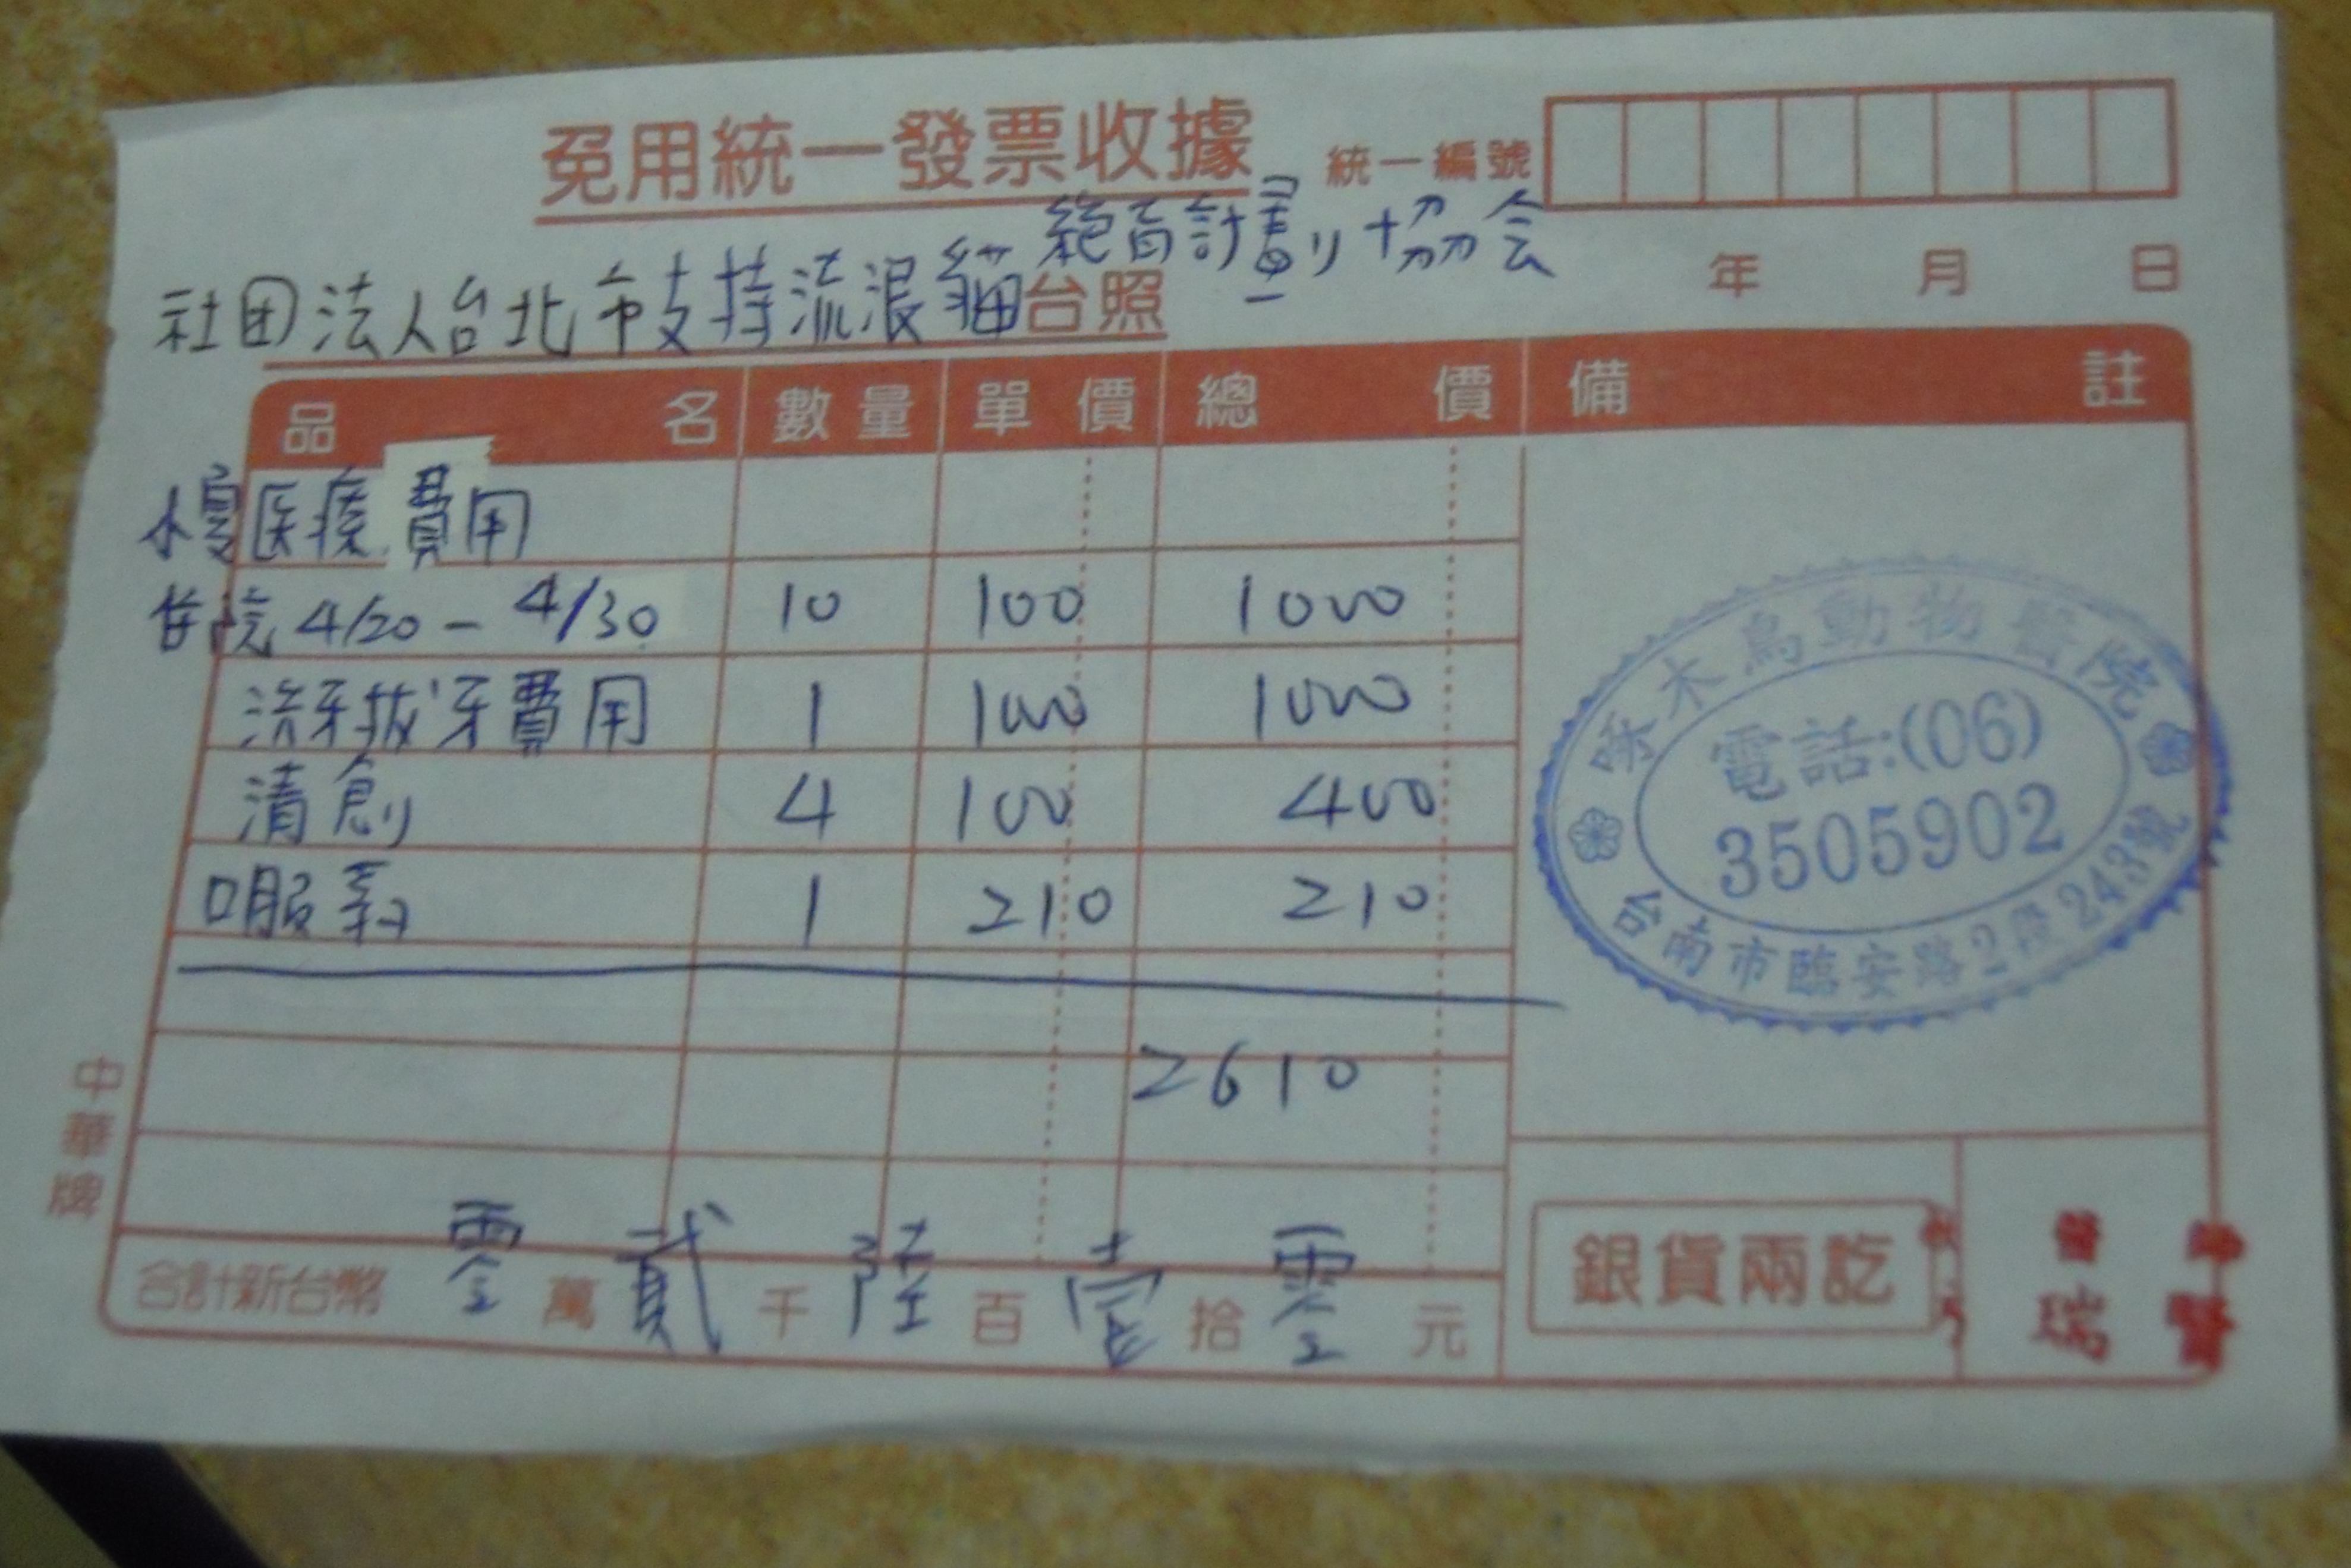 免用統一發票收據
統一編號
絕育計劃協会
社团法人台北市支持流浪貓台照
年 月 日
品名 數量 單價 總價 備註
小憂医療費用
住院 4/20 - 4/30 10 100 1000
洗牙拔牙費用 1 1000 1000
清創 4 100 400
口服藥 1 210 210
2610
啄木鳥動物醫院
電話:(06)
3505902
台南市臨安路2段243號
中華牌
合計新台幣 零萬貳千陸百壹拾零元
銀貨兩訖